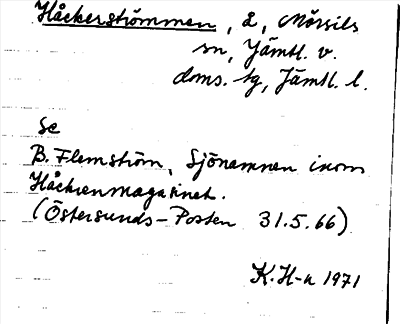 Håckerströmmen, å, Mörsils
sn, Jämtl. v.
doms. tg, Jämtl. l.
Se
B. Flemström, Sjönamnen inom
Håckrenmagasinet.
(Östersunds-Posten 31.5.66)
K.H-n 1971